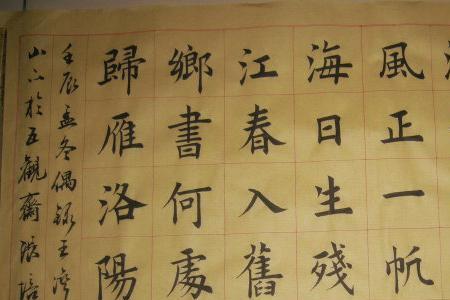 風正一帆
海日生殘
江春入舊
鄉書何處
歸雁洛陽
壬辰孟冬偶錄王灣
山下於五觀齋